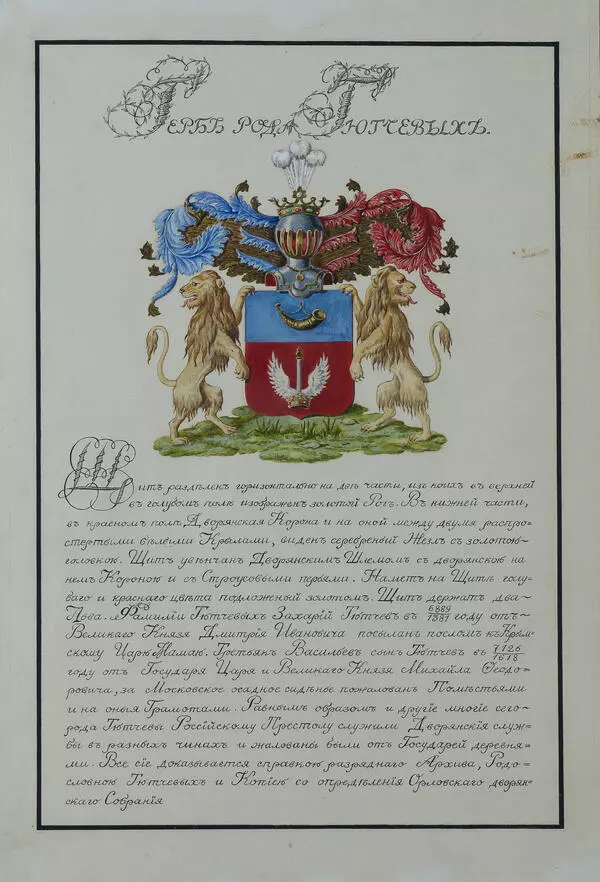 Гербъ рода Тютчевыхъ.
Щитъ раздѣленъ горизонтально на двѣ части, изъ коихъ въ верхней
въ голубомъ полѣ изображенъ золотой Рогъ. Въ нижней части,
въ красномъ полѣ Дворянская Корона и на оной между двумя распро-
стертыми бѣлыми Крылами, виденъ серебреный Жезлъ съ золотою
головкою. Щитъ увѣнчанъ Дворянскимъ Шлемомъ съ дворянскою на
немъ Короною и съ Строусовыми перьями. Наметъ на Щитѣ голу-
баго и краснаго цвѣта подложенный золотомъ. Щитъ держатъ два
Льва. Фамиліи Тютчевыхъ Захарій Тютчевъ въ 6889/1381 году отъ
Великаго Князя Дмитрія Ивановича посыланъ посломъ къ Крым-
скому Царю Мамаю. Третьякъ Васильевъ сынъ Тютчевъ въ 7126/1618
году отъ Государя Царя и Великаго Князя Михайла Ѳеодо-
ровича, за Московское осадное сидѣнье пожалованъ Помѣстьями
и на оныя Грамотами. Равнымъ образомъ и другіе многіе сего
рода Тютчевы Россійскому Престолу служили Дворянскія служ-
бы въ разныхъ чинахъ и жалованы были отъ Государей деревня-
ми. Все сіе доказывается справкою разряднаго Архива, Родо-
словною Тютчевыхъ и Копіею со опредѣленія Орловскаго дворян-
скаго Собранія